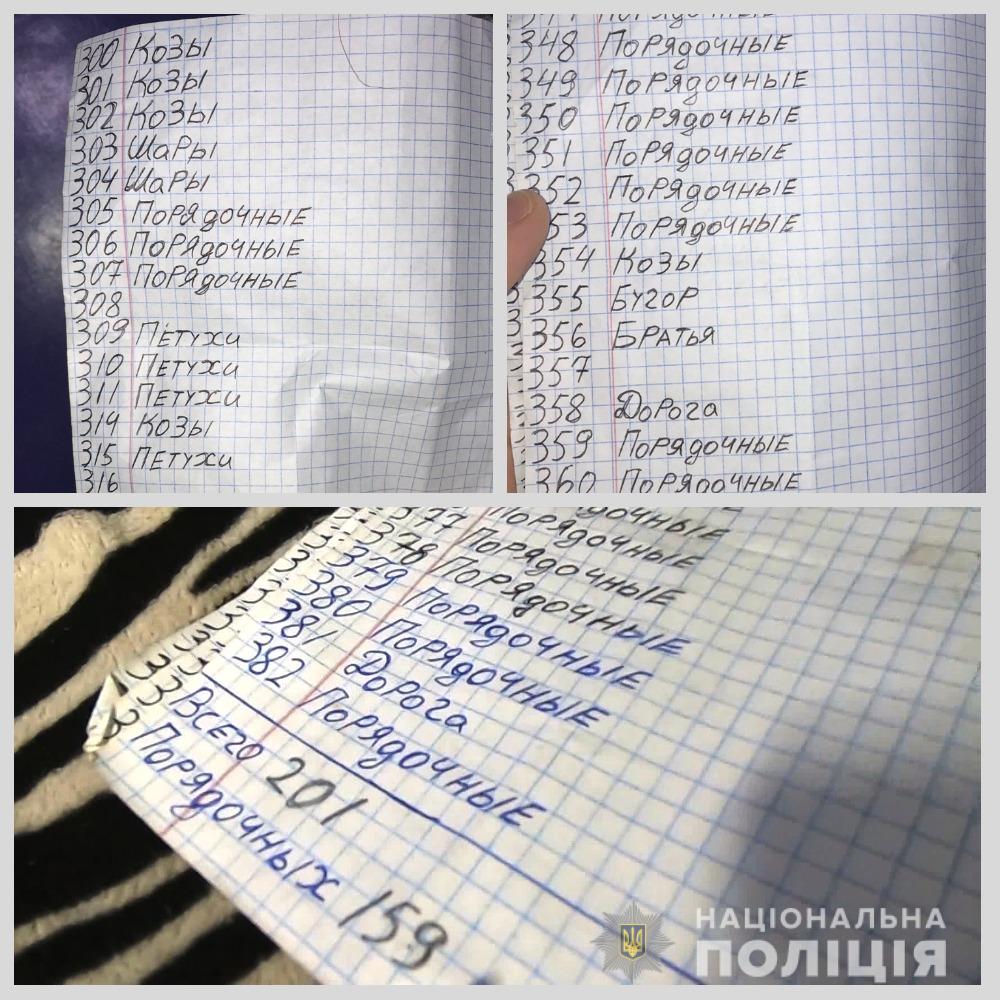 300 Козы
301 Козы
302 Козы
303 Шары
304 Шары
305 Порядочные
306 Порядочные
307 Порядочные
308
309 Петухи
310 Петухи
311 Петухи
314 Козы
315 Петухи
316
348 Порядочные
349 Порядочные
350 Порядочные
351 Порядочные
352 Порядочные
53 Порядочные
354 Козы
355 Бугор
356 Братья
357
358 Дорога
359 Порядочные
360 Порядочные
377 Порядочные
378 Порядочные
379 Порядочные
380 Порядочные
381 Дорога
382 Порядочные
Всего 201
Порядочных 159
НАЦІОНАЛЬНА
ПОЛІЦІЯ